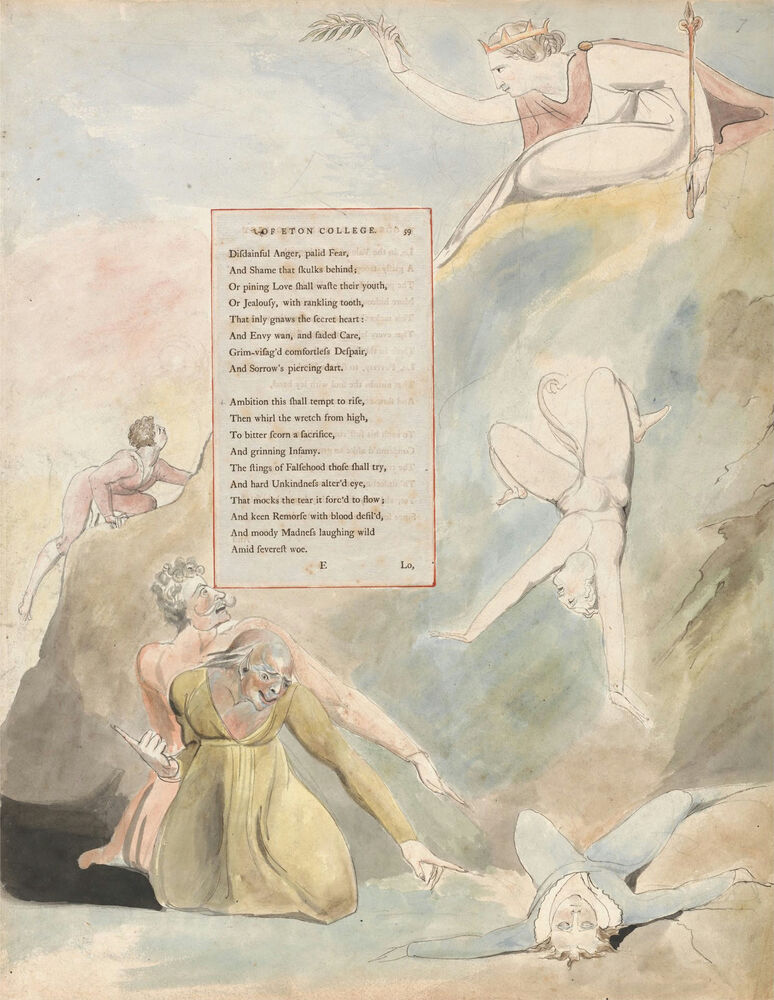 7
OF ETON COLLEGE. 59
Diſdainful Anger, palid Fear,
And Shame that ſkulks behind;
Or pining Love ſhall waſte their youth,
Or Jealouſy, with rankling tooth,
That inly gnaws the ſecret heart:
And Envy wan, and faded Care,
Grim-viſag'd comfortleſs Deſpair,
And Sorrow's piercing dart.
Ambition this ſhall tempt to riſe,
Then whirl the wretch from high,
To bitter ſcorn a ſacrifice,
And grinning Infamy.
The ſtings of Falſehood thoſe ſhall try,
And hard Unkindneſs alter'd eye,
That mocks the tear it forc'd to flow;
And keen Remorſe with blood defil'd,
And moody Madneſs laughing wild
Amid ſevereſt woe.
E Lo,